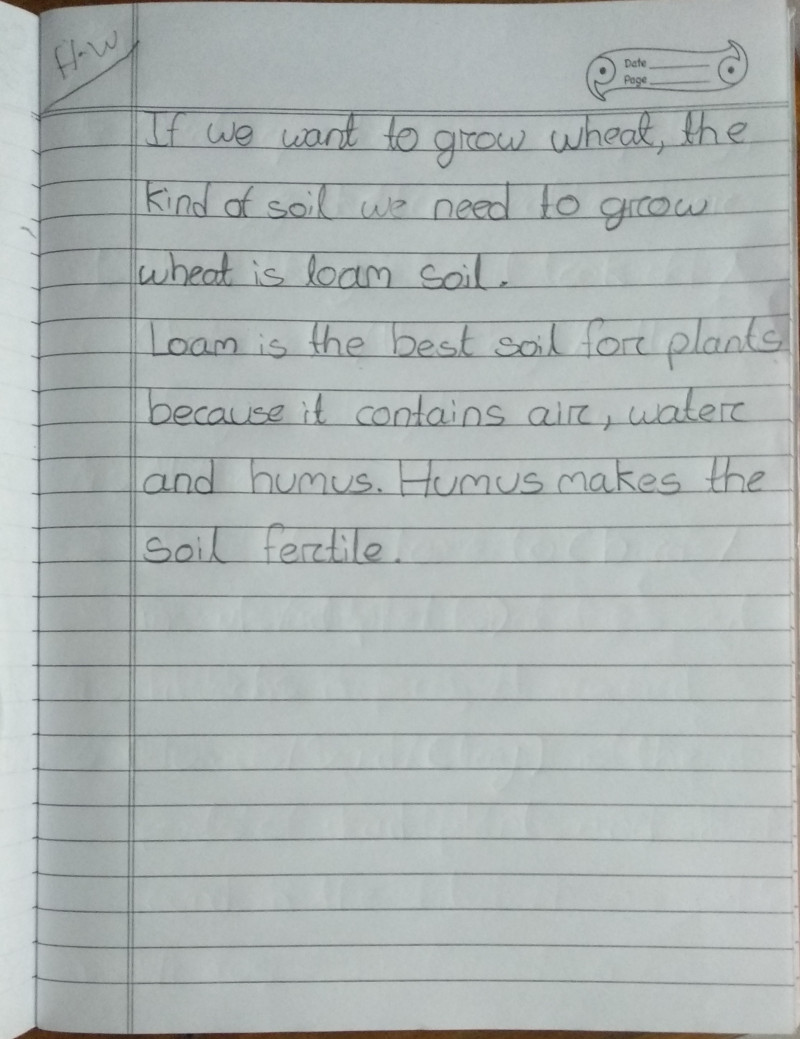 H-W
Date
Page
If we want to grow wheat, the
kind of soil we need to grow
wheat is loam soil.
Loam is the best soil for plants
because it contains air, water
and humus. Humus makes the
soil fertile.